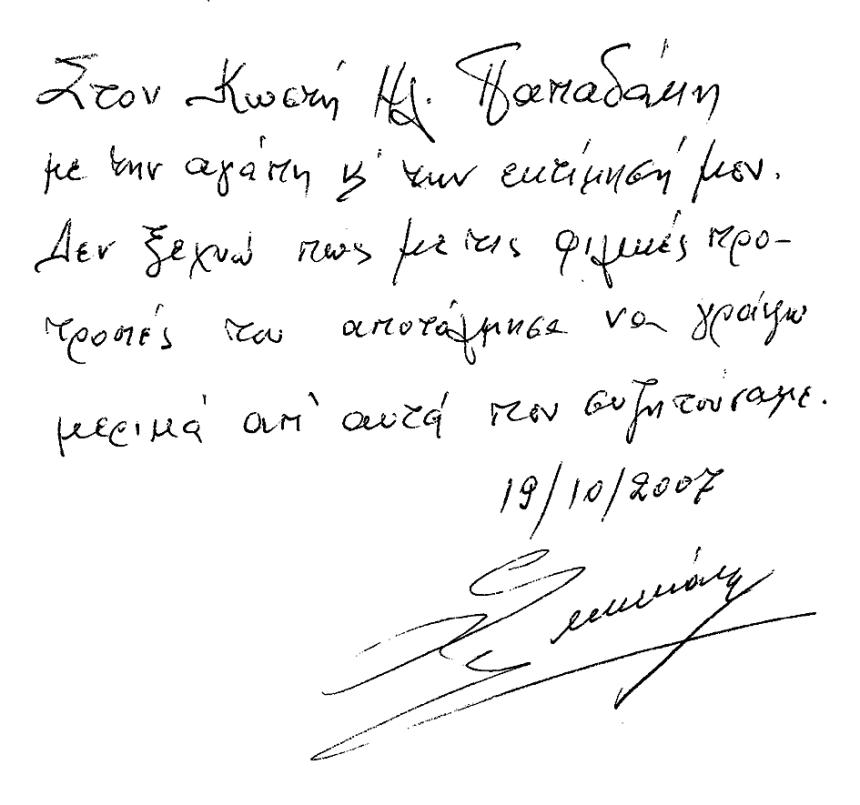 Στον Κωστή Ηλ. Παπαδάκη
με την αγάπη κ' την εκτίμησή μου.
Δεν ξεχνώ πως με τις φιλικές προ-
τροπές του αποτόλμησα να γράψω
μερικά απ' αυτά που συζητούσαμε.
19/10/2007